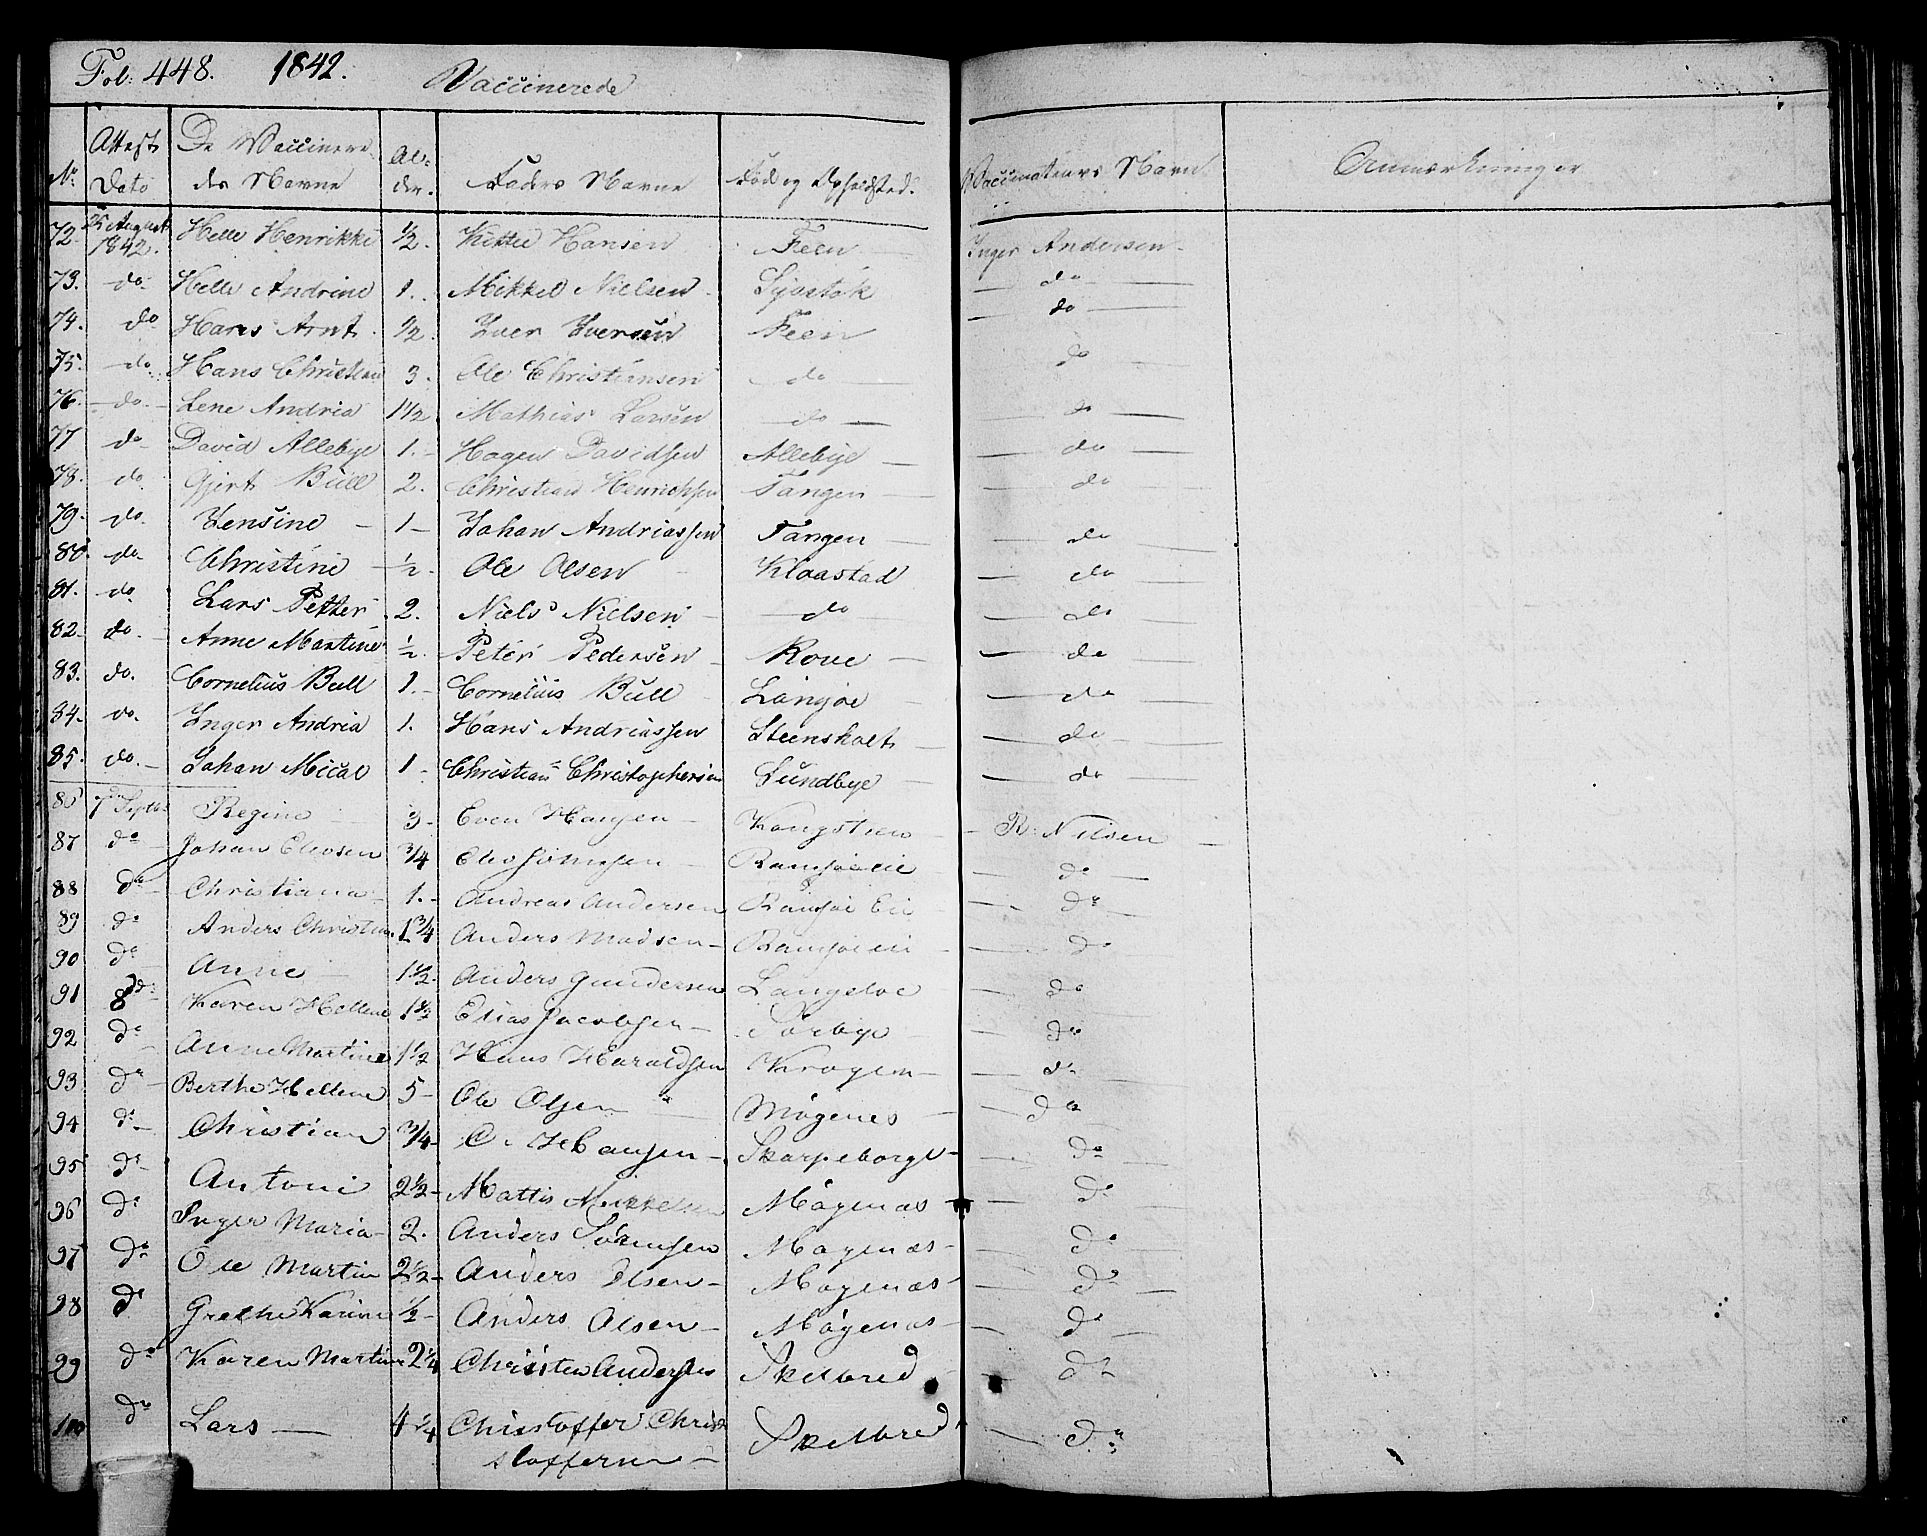 Fol: 448. 1842. Vaccinerede
No Attest Dato De Vaccinere-des Navne Al-der. Faders Navne Föd og Opholdsted. Vaccinateurs Navn Anmærkninger
72 August 1842. Helle Henrikke 1/2. Kittel Hansen Feen Inger Andersen
73. do Helle Andrine 1. Mikkel Nielsen do
74. do Hans Arnt 1/2. Iver Iversen Feen do
75. do Hans Christian 3. Ole Christiansen do do
76. do Lene Andria 1 1/2 Mathias Larsen do do
77 do David Allebye 1. Hagen Davidsen Allebye do
78. do Gjert Bull 2. Christian Henrichsen Tangen do
79. do Jensine 1 Johan Andriassen Tangen do
80 do Christine 1/2. Ole Olsen Klaastad do
81. do Lars Petter 2. Niels Nielsen do do
82. do Anne Martine 1/2 Peter Pedersen Rove do
83. do. Cornelius Bull 1. Cornelius Bull Langöe do
84. do. Inger Andria 1. Hans Andriassen Steensholt do
85. do. Johan Micael 1 Christian Christophersen Sundbye do
86 7 Septb: Regine 3 Even Hansen Kongsteen R: Nilsen
87 do Johan Elevsen 3/4 Elev do
88 do Christiana 1. Andreas Andersen do
89 do Anders Christian 1 3/4 Anders Madsen do
90 do Anne 1 1/2. Anders Gundersen Langeloe do
91 8 do Karen Hellene 1 1/2 Elias Jacobsen Sörbye do
92 do Anne Martine 1 1/2 Hans Haraldsen Krogen do
93 do Berthe Hellene 5 Ole Olsen Mögenes do
94 do Christian 3/4 O. Hansen Skarpeborgt do
95 do Antoni 2 1/2 Mattis Mikkelsen Mögenæs do
96 do Inger Maria 2. Anders Sörensen Mögenæs do
97 do Ole Martin 2 1/2 Anders Olsen Mögenæs do
98 do Grethe Karine 1/2 Anders Olsen Mögenæs do
99 do Karen Martine 2 1/4 Christen Andersen Skelbred do
100 do Lars 4 1/4 Christoffer Chri-
stoffersen Skelbred do